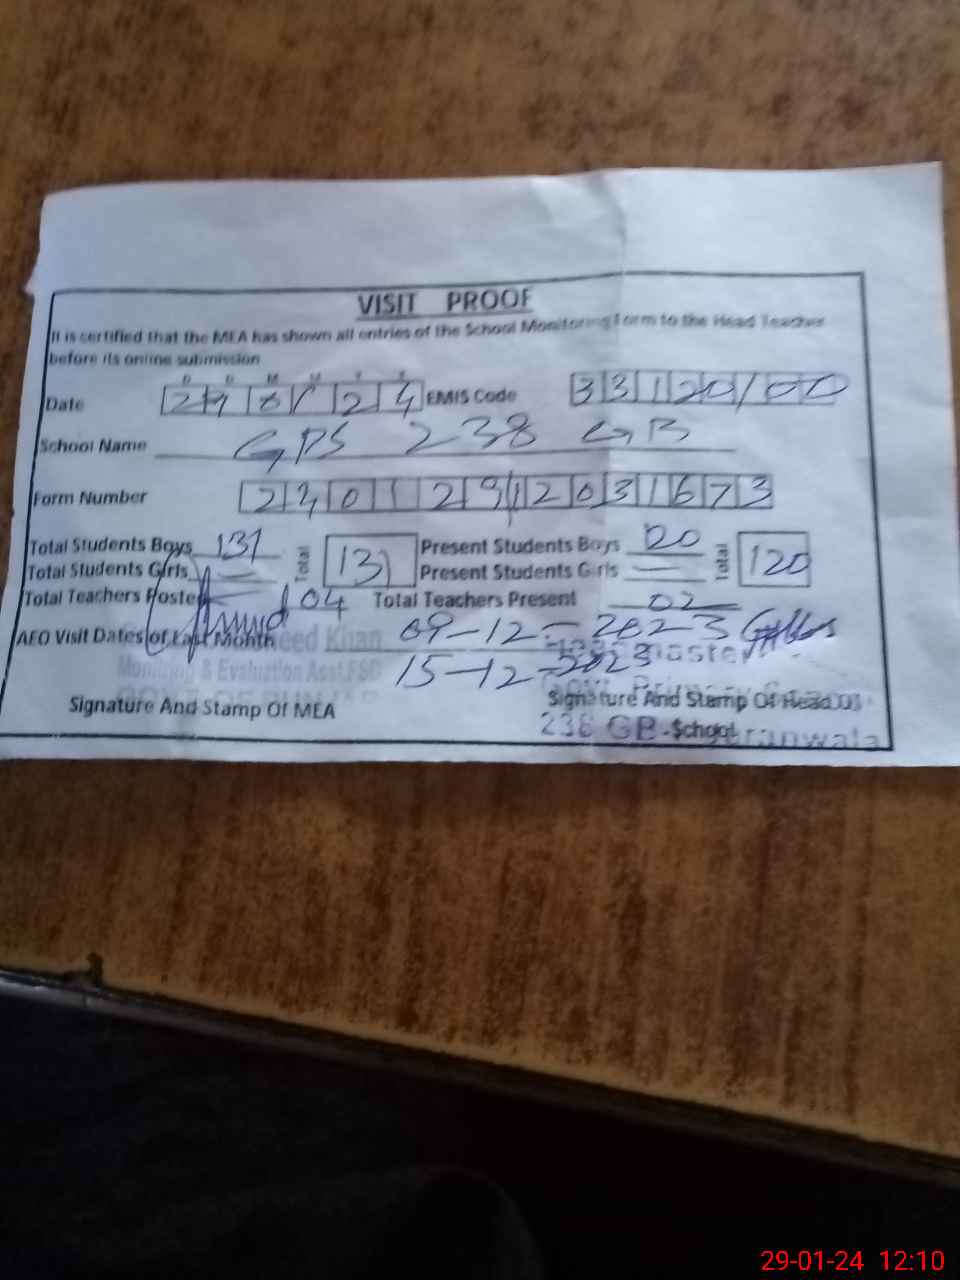 VISIT PROOF
It is certified that the MEA has shown all entries of the School Monitoring Form to the Head Teacher
before its online submission
D D M M Y Y
Date 29 01 24 EMIS Code 33120100
School Name GPS 238 GB
Form Number 24012912031673
Total Students Boys 131 Total 131 Present Students Boys 120 Total 120
Total Students Girls — Present Students Girls —
Total Teachers Posted 04 Total Teachers Present 02
AEO Visit Dates of Last Month 09-12-2023
15-12-2023
Khan
Monitring & Evaluation Asst FSD
Signature And Stamp Of MEA
Signature And Stamp Of Head
238 GB School
29-01-24 12:10